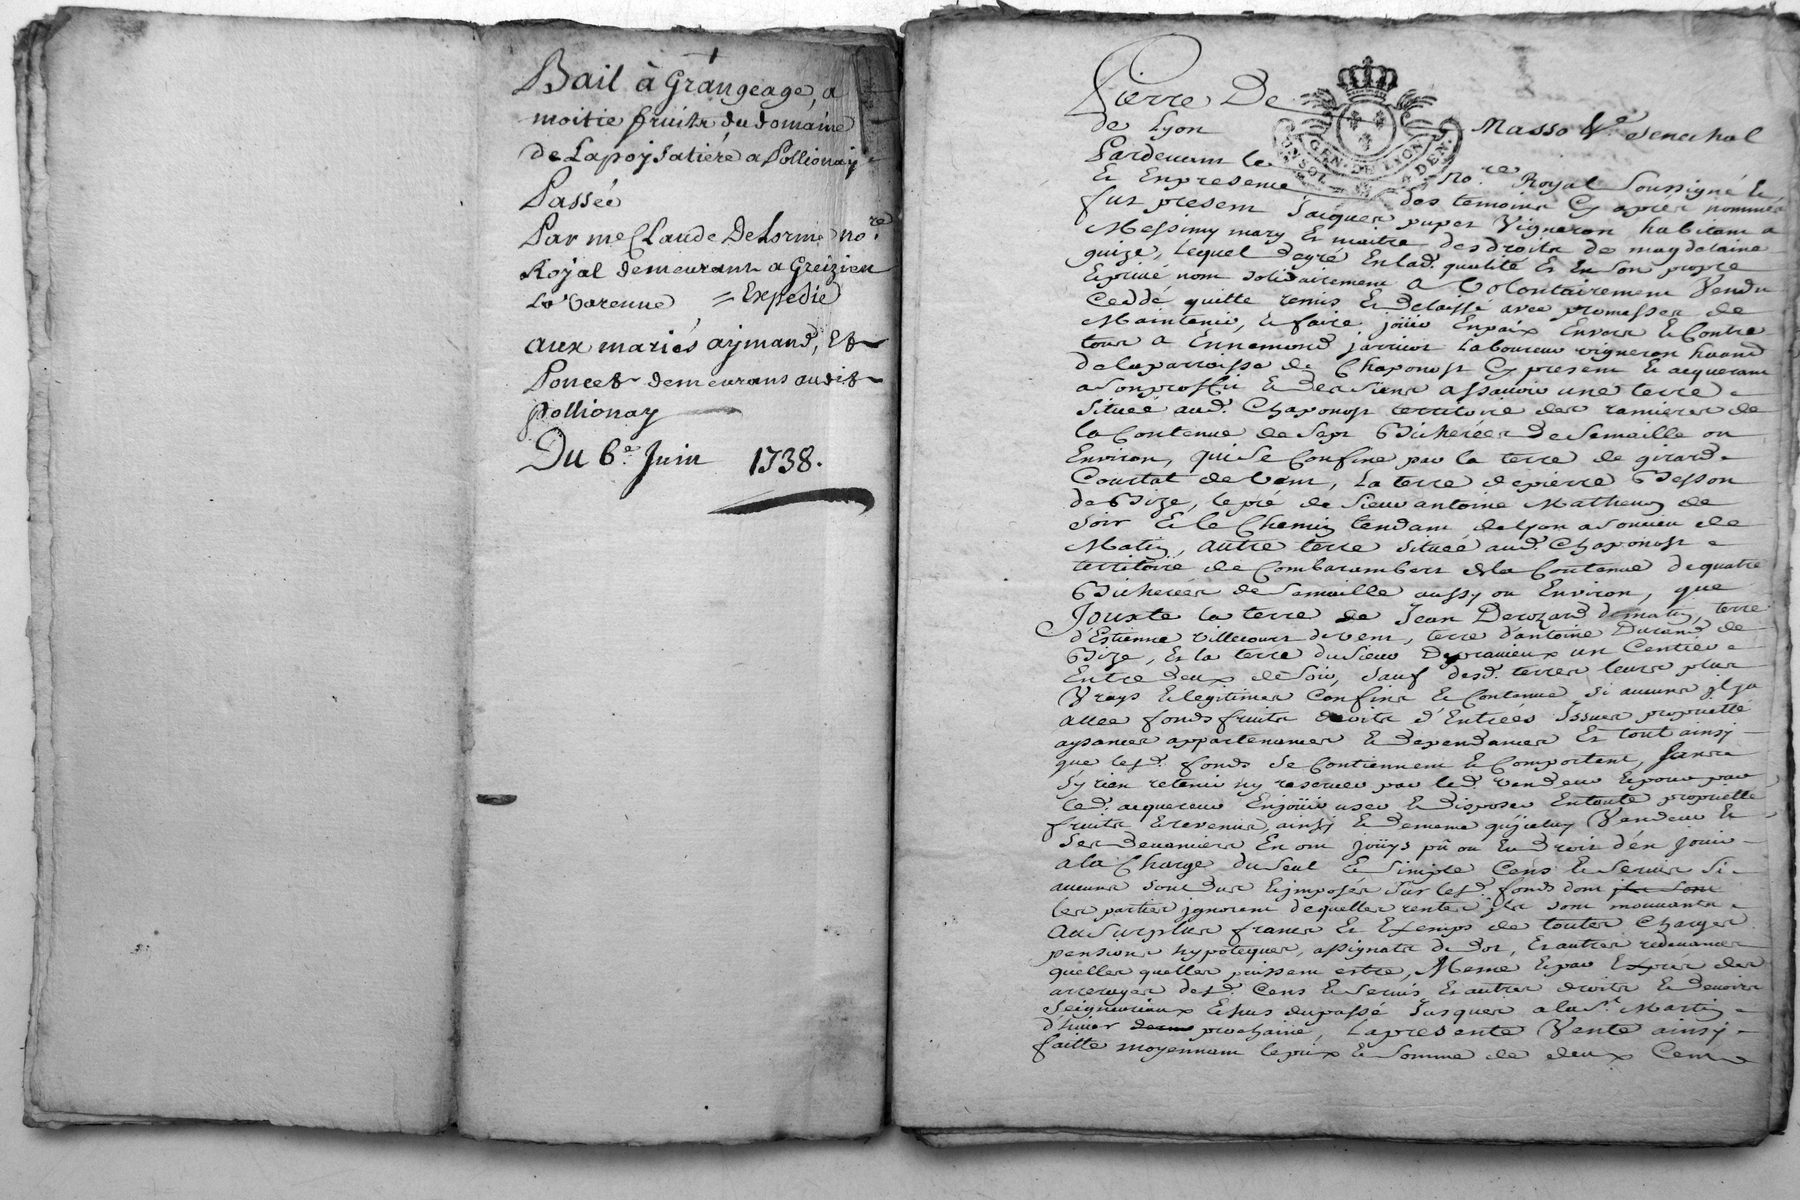 Bail à Grangeage, a
moitié fruits du domaine
de Lapoysatiére a Pollionay
Passée
Par me Claude Delorme no.re
Royal demeurant a Greizieu
La Varenne, = Expedie
aux mariés aymand, Et
Poncet demeurans audit
pollionay
Du 6.e Juin 1738.
Pierre De Masso Sr. Senechal
de Lyon
GEN. DE LYON
Pardevant le no.re Royal soussigné &
En presence des temoins cy après nommés
fut present Jacques Vigneron habitant a
Messimy mary & maitre des droits de magdelaine
lequel degré En lad. qualité & En son propre
& privé nom solidairement a Volontairement Vendu
Ceddé quitte remis & delaissé avec promesses de
Maintenir, & faire joüir En paix Envers & Contre
tous a Ennemond jarricot Laboureur vigneron
de la parroisse de Chaponost Cy present & acquerant
a son proffit & des siens assavoir une terre
Situéé aud. Chaponost territoire des ramieres de
la Contenue de Sept Bicheréés De Semaille ou
Environ, qui se Confine par la terre de girard
Coustat de Vent, la terre de pierre Besson
de Bize, le pré de Sieur antoine Mathevon de
Soir & le Chemin tendant de Lyon a Soucieu de
Matin, autre terre situéé aud. Chaponost
territoire de Combarambert de la Contenue de quatre
Bicheréés de Semaille aussy ou Environ, que
Jouxte la terre de Jean Derozard de matin, terre
d'Estienne Villecourt de Vent, terre d'antoine Durand de
Bize, Et la terre du Sieur un Centier
Entre deux de Soir, Sauf desd. terres leurs plus
Vrays & legitimes Confins & Contenue si aucuns il y a
avec fonds fruits droits d'Entréés Issues proprietté
aysances appartenances & dependances Et tout ainsy
que lesd. fonds se Contiennent & Comportent, sans
s'y rien retenir ny reserver par led. vendeur & pour par
led. acquereur En joüir user & disposer En toute proprietté
fruits & revenus, ainsy & de meme qu'iceluy Vendeur &
Ses devanciers En ont joüys pû ou eu droit d'en jouir
a la Charge du Seul & Simple Cens & Servis Si
aucuns sont dus & jmposés sur lesd. fonds dont jls sont
les parties jgnorent de quelles rentes jls sont mouvants
au Surplus francs & Exemps de toutes Charges
pensions hypoteques, assignats de dot, & autres redevances
quelles quelles puissent estre, Meme & par Exprés des
arrerages desd. Cens & Servis & autres droits & devoirs
Seigneuriaux Echus du passé Jusques a la St. Martin
d'hiver prochaine, La presente Vente ainsy
faitte moyennant le prix & Somme de deux Cent